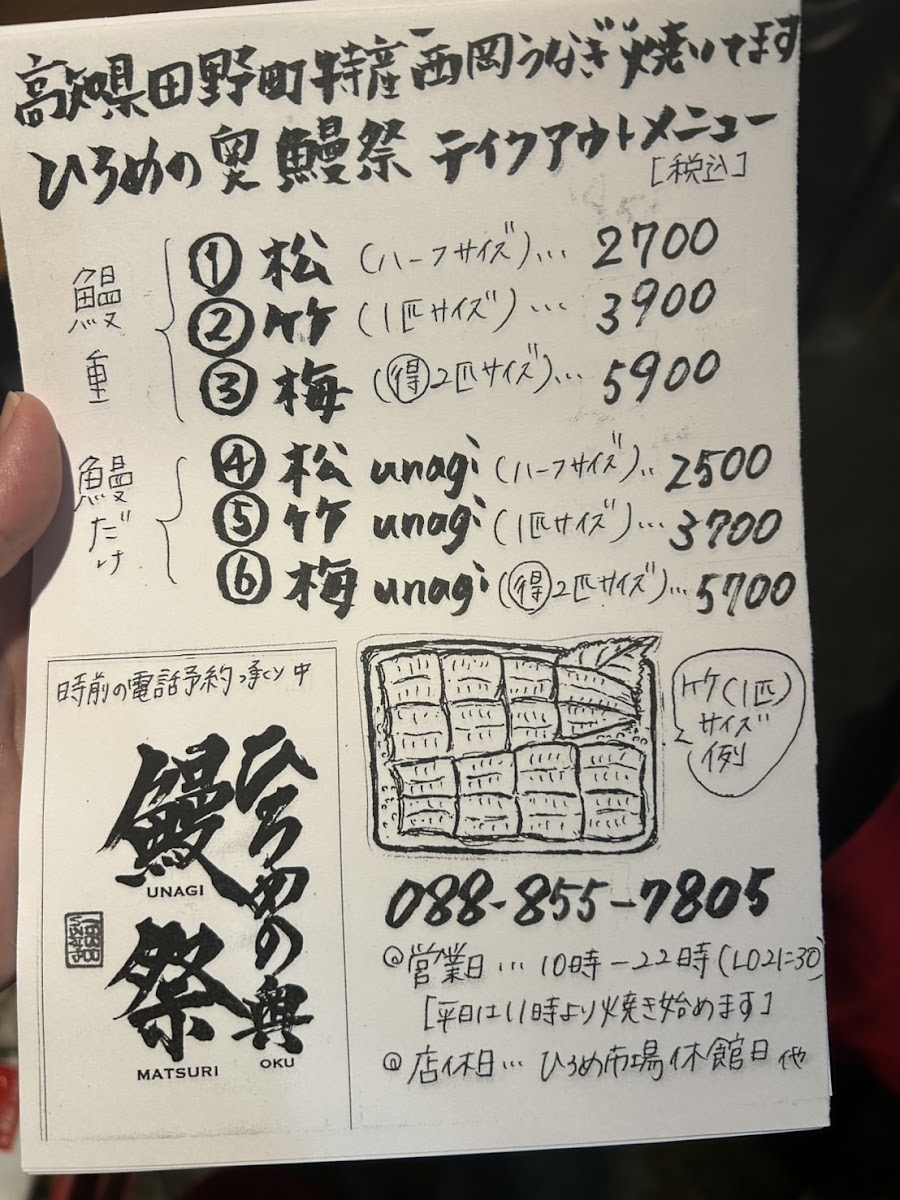 高知県田野町特産西岡うなぎ焼いてます
ひろめの奥鰻祭 テイクアウトメニュー
[税込]
鰻重
① 松 (ハーフサイズ)… 2700
② 竹 (1匹サイズ)… 3900
③ 梅 (得2匹サイズ)… 5900
鰻だけ
④ 松 unagi (ハーフサイズ)‥ 2500
⑤ 竹 unagi (1匹サイズ)… 3700
⑥ 梅 unagi (得2匹サイズ)… 5700
時前の電話予約承り中
ひろめの奥
鰻祭
UNAGI
MATSURI
OKU
竹(1匹)
サイズ
例
088-855-7805
営業日…10時-22時(LO21:30)
[平日は11時より焼き始めます]
店休日…ひろめ市場休館日 他